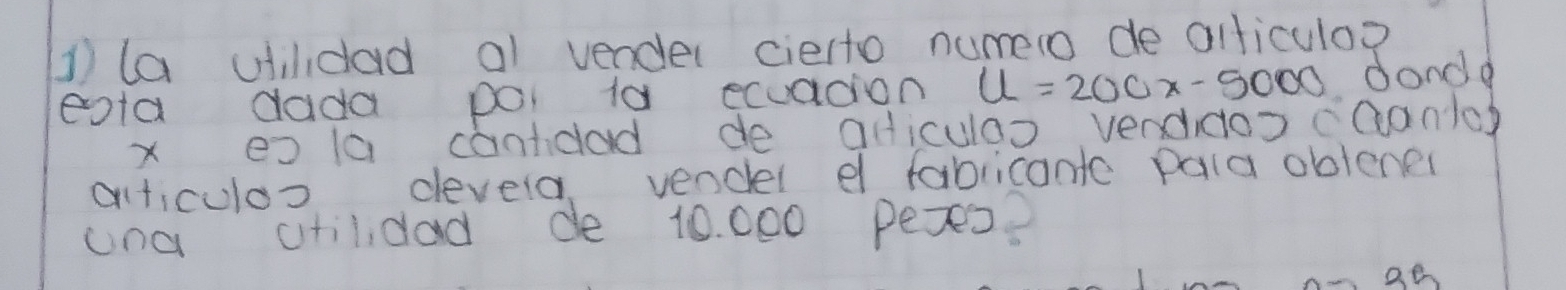 1) La utilidad al vender cierto numero de articulos
esta dada por la ecuacion U = 200x - 5000 donde
x es la cantidad de articulos vendidos ¿Cuantos
articulos devera vender el fabricante para obtener
una utilidad de 10.000 pesos?